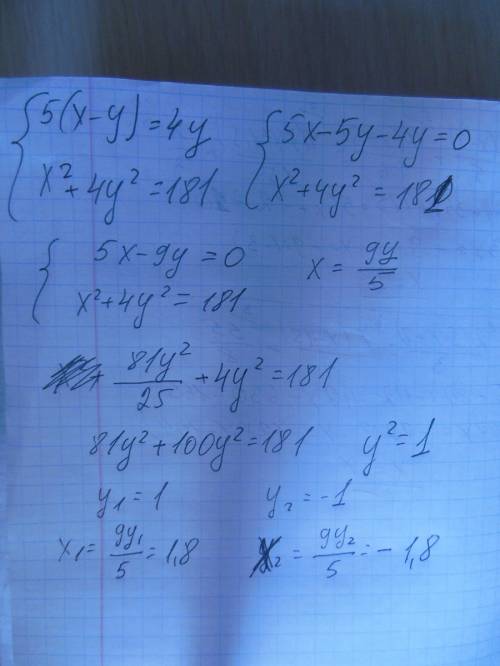 5(x-y)=4y
x²+4y²=181
5x-5y-4y=0
x²+4y²=181
5x-9y=0
x²+4y²=181
x=9y/5
81y²/25+4y²=181
81y²+100y²=181 y²=1
y₁=1 y₂=-1
x₁=9y₁/5=1,8 x₂=9y₂/5=-1,8